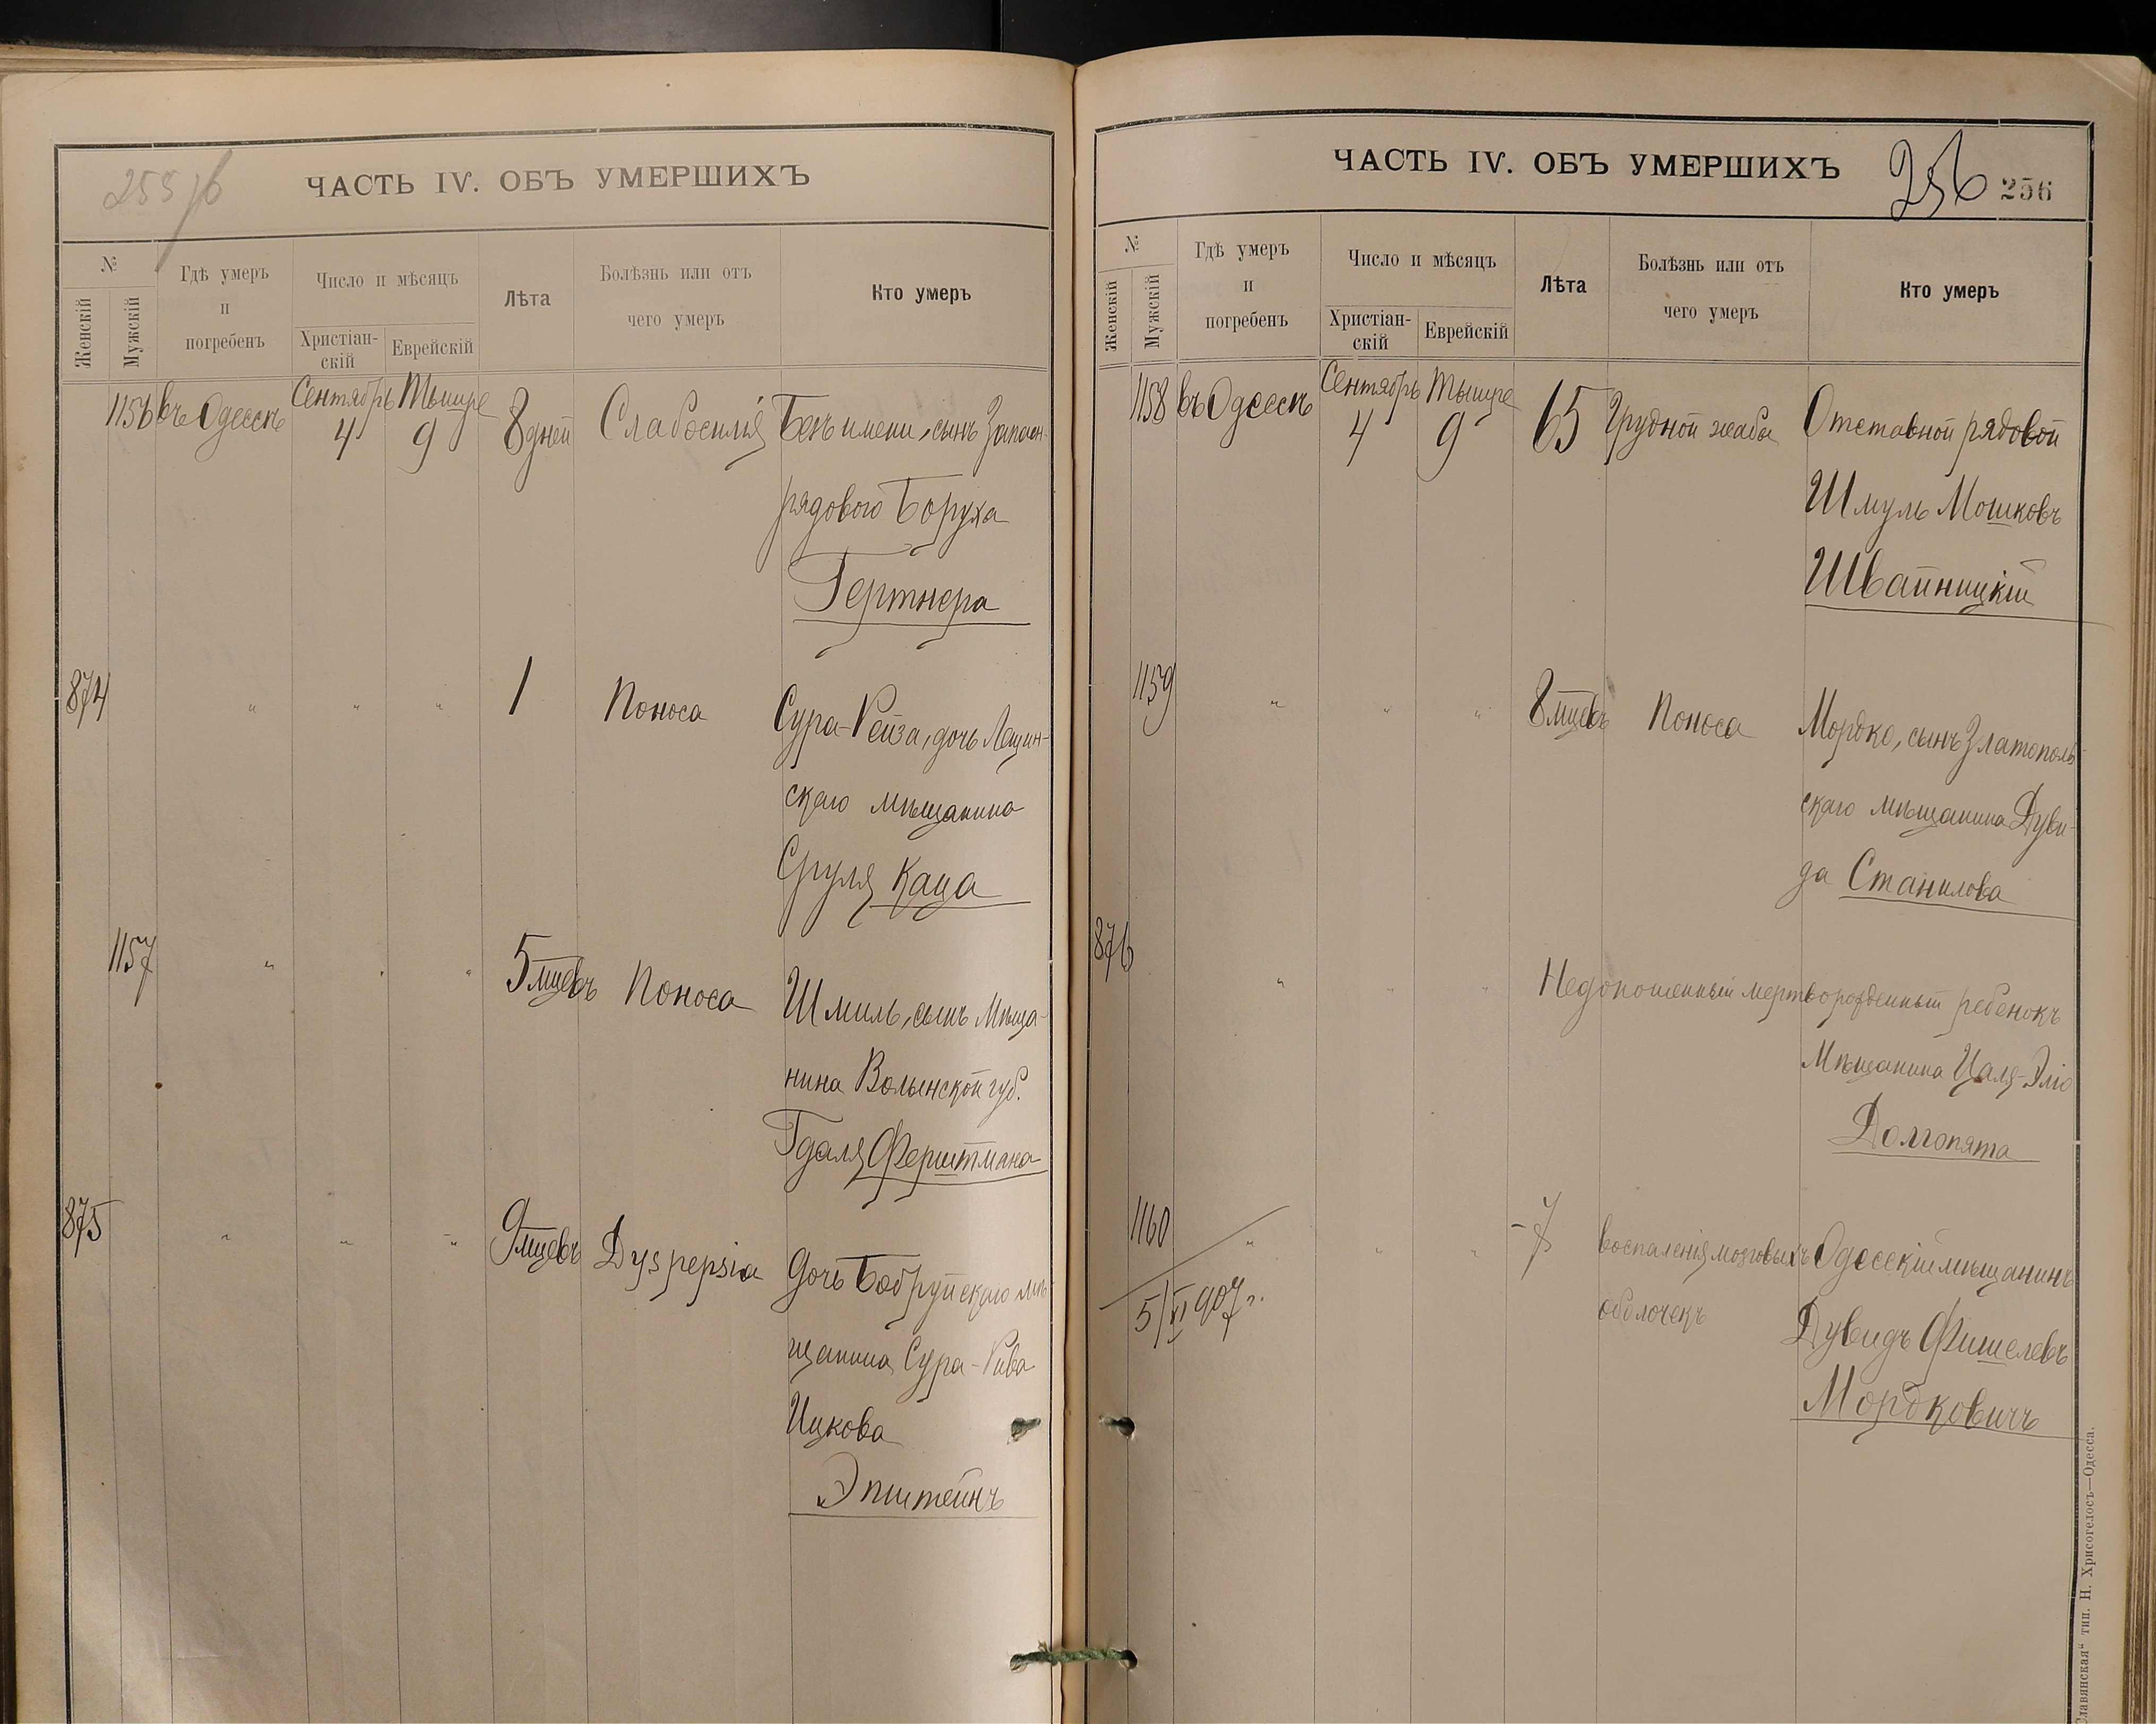 255 об
ЧАСТЬ IV. ОБЪ УМЕРШИХЪ
№
Женскій
Мужскій
Гдѣ умеръ
и
погребенъ
Число и мѣсяцъ
Христіан-
скій
Еврейскій
Лѣта
Болѣзнь или отъ
чего умеръ
Кто умеръ
1156 въ Одессѣ Сентябрь 4 Тышре 9 8 дней Слабосилія Безъ имени, сынъ Запасн.
рядового Боруха
Гертнера
874 " " " 1 Поноса Сура-Рейза, дочь
скаго мѣщанина
Сруля Каца
1157 " " " 5 мцевъ Поноса Шмиль, сынъ Мѣща-
нина Волынской губ.
Гдаля Ферштмана
875 " " " 9 мцевъ Dyspepsia Дочь Бобруйскаго мѣ-
щанина Сура-Рива
Ицкова
Эпштейнъ
ЧАСТЬ IV. ОБЪ УМЕРШИХЪ
256
256
№
Женскій
Мужскій
Гдѣ умеръ
и
погребенъ
Число и мѣсяцъ
Христіан-
скій
Еврейскій
Лѣта
Болѣзнь или отъ
чего умеръ
Кто умеръ
1158 въ Одессѣ Сентябрь 4 Тышре 9 65 Грудной жабы Отставной рядовой
Шмуль Мошковъ
Швайницкій
1159 " " " 8 мцевъ Поноса Мордко, сынъ Златополь-
скаго мѣщанина Дуви-
да Станилова
876 " " " Недоношенный мертворожденный ребенокъ
Мѣщанина Цаля-Эліо
Долгопята
1160 " " " 7 воспаленія мозговыхъ Одесскій мѣщанинъ
оболочекъ Дувидъ Фишелевъ
5/VI 907 г.
Мордковичъ
Славянская“ тип. Н. Хрисогелосъ—Одесса.